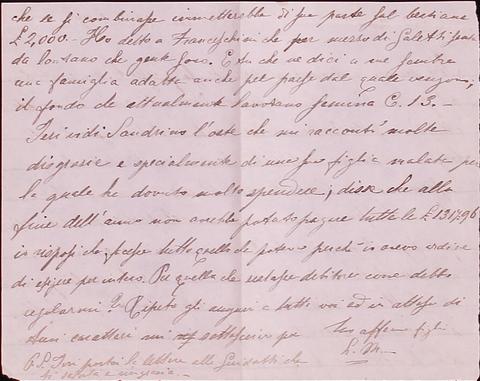 che se si combinasse immetterebbe di sua parte sul bestiame
£ 2,000.- Ho detto a Franceschini che per mezzo di Galetti
da lontano che gente sono. E tu che ne dici a me sembra
una famiglia adatta anche pel paese dal quale vengono;
il fondo che attualmente lavorano semina C. 13.-
Ieri vidi Sandrino l'oste che mi raccontò molte
disgrazie e specialmente di una sua figlia malata per
la quale ha dovuto molto spendere; disse che alla
fine dell'anno non avrebbe potuto pagare tutte le £ 1317,96
io risposi che facesse tutto quello che poteva perchè io avevo ordine
di esigere per intero. Per quello che restasse debitore come debbo
regolarmi? Ripeto gli auguri a tutti voi ed in attesa di
tuoi caratteri mi sottoscrivo
tuo affmo figlio
L. M.
P.S. Ieri portai la lettera alla che
ti saluta e ringrazia.-